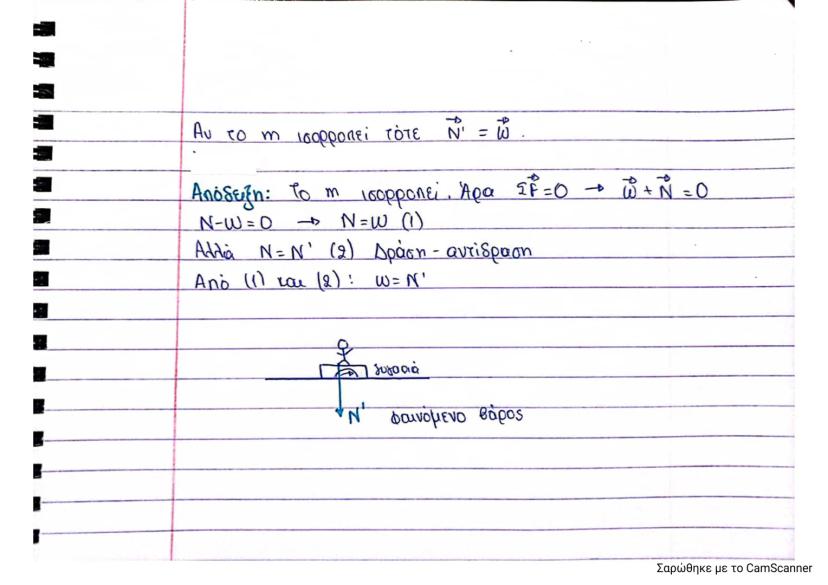 Αν το m ισορροπεί τότε N⃗' = w⃗.
Απόδειξη: Το m ισορροπεί. Άρα ΣF⃗=0 → w⃗ + N⃗ = 0
N-w=0 → N=w (1)
Αλλά N=N' (2) Δράση - αντίδραση
Από (1) και (2): w=N'
ζυγαριά
N' φαινόμενο βάρος
Σαρώθηκε με το CamScanner